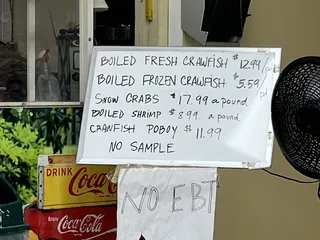 BOILED FRESH CRAWFISH $12.99/
BOILED FROZEN CRAWFISH $5.59
SNOW CRABS $17.99 a pound
BOILED SHRIMP $8.99 a pound
CRAWFISH POBOY $11.99
NO SAMPLE
NO EBT
DRINK
Coca
Coca-Cola